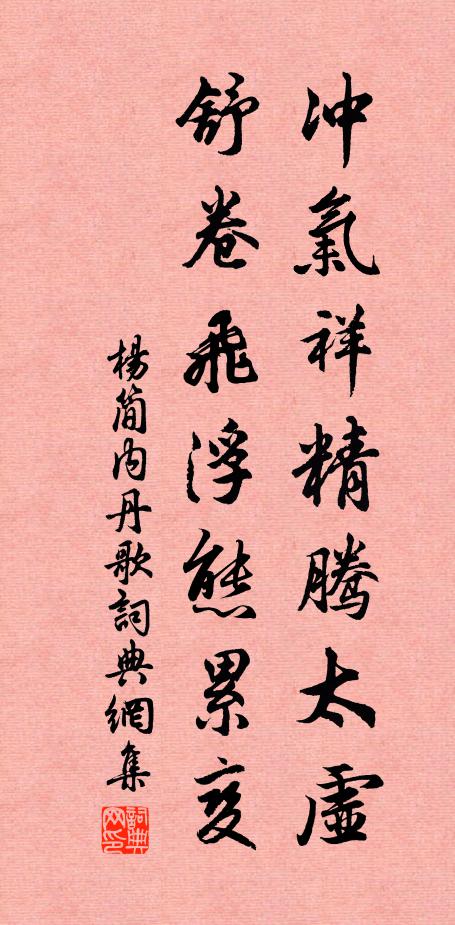 冲氣祥精騰太虛
舒卷飛浮態累变
楊简内丹歌詞典網集
詞典网印